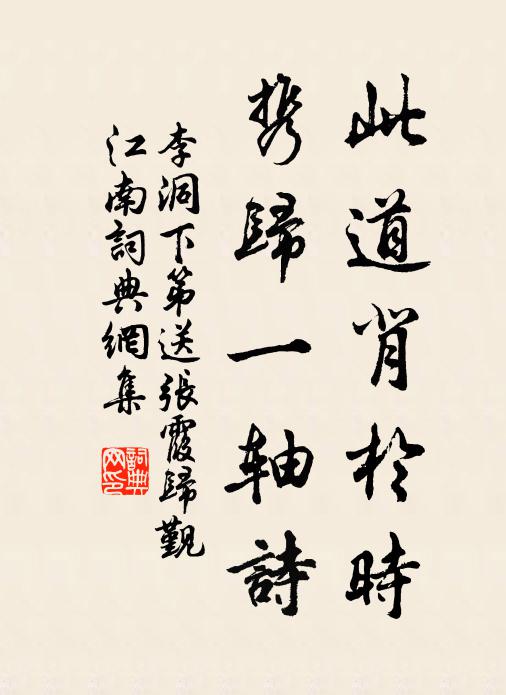 此道背於時
携歸一軸詩
李洞下第送張霞歸覲
江南詞典網集
詞典网印